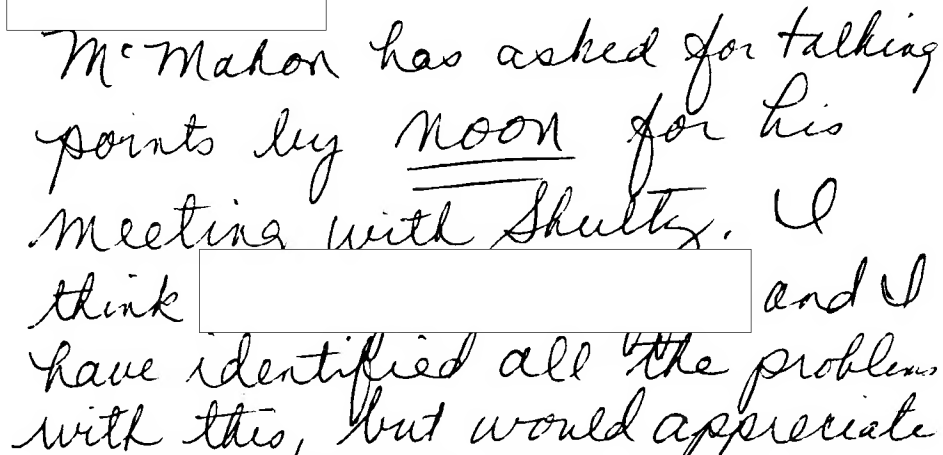 McMahon has asked for talking
points by noon for his
meeting with Shultz. I
think and I
have identified all the problems
with this, but would appreciate